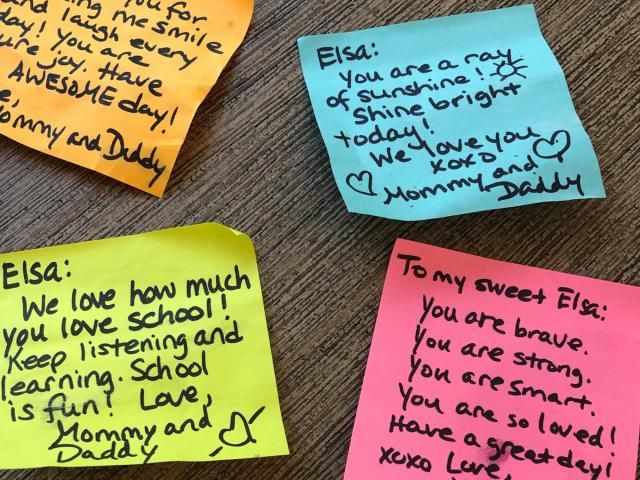 you for
ing me smile
and laugh every
day! you are
ure joy. Have
AWESOME day!
ommy and Daddy
Elsa:
You are a ray
of sunshine!
Shine bright
today!
We love you
xoxo
Mommy and
Daddy
Elsa:
We love how much
you love school!
Keep listening and
learning. School
is fun! Love,
Mommy and
Daddy
To my sweet Elsa:
You are brave.
You are strong.
You are smart.
You are so loved!
Have a great day!
xoxo Love,